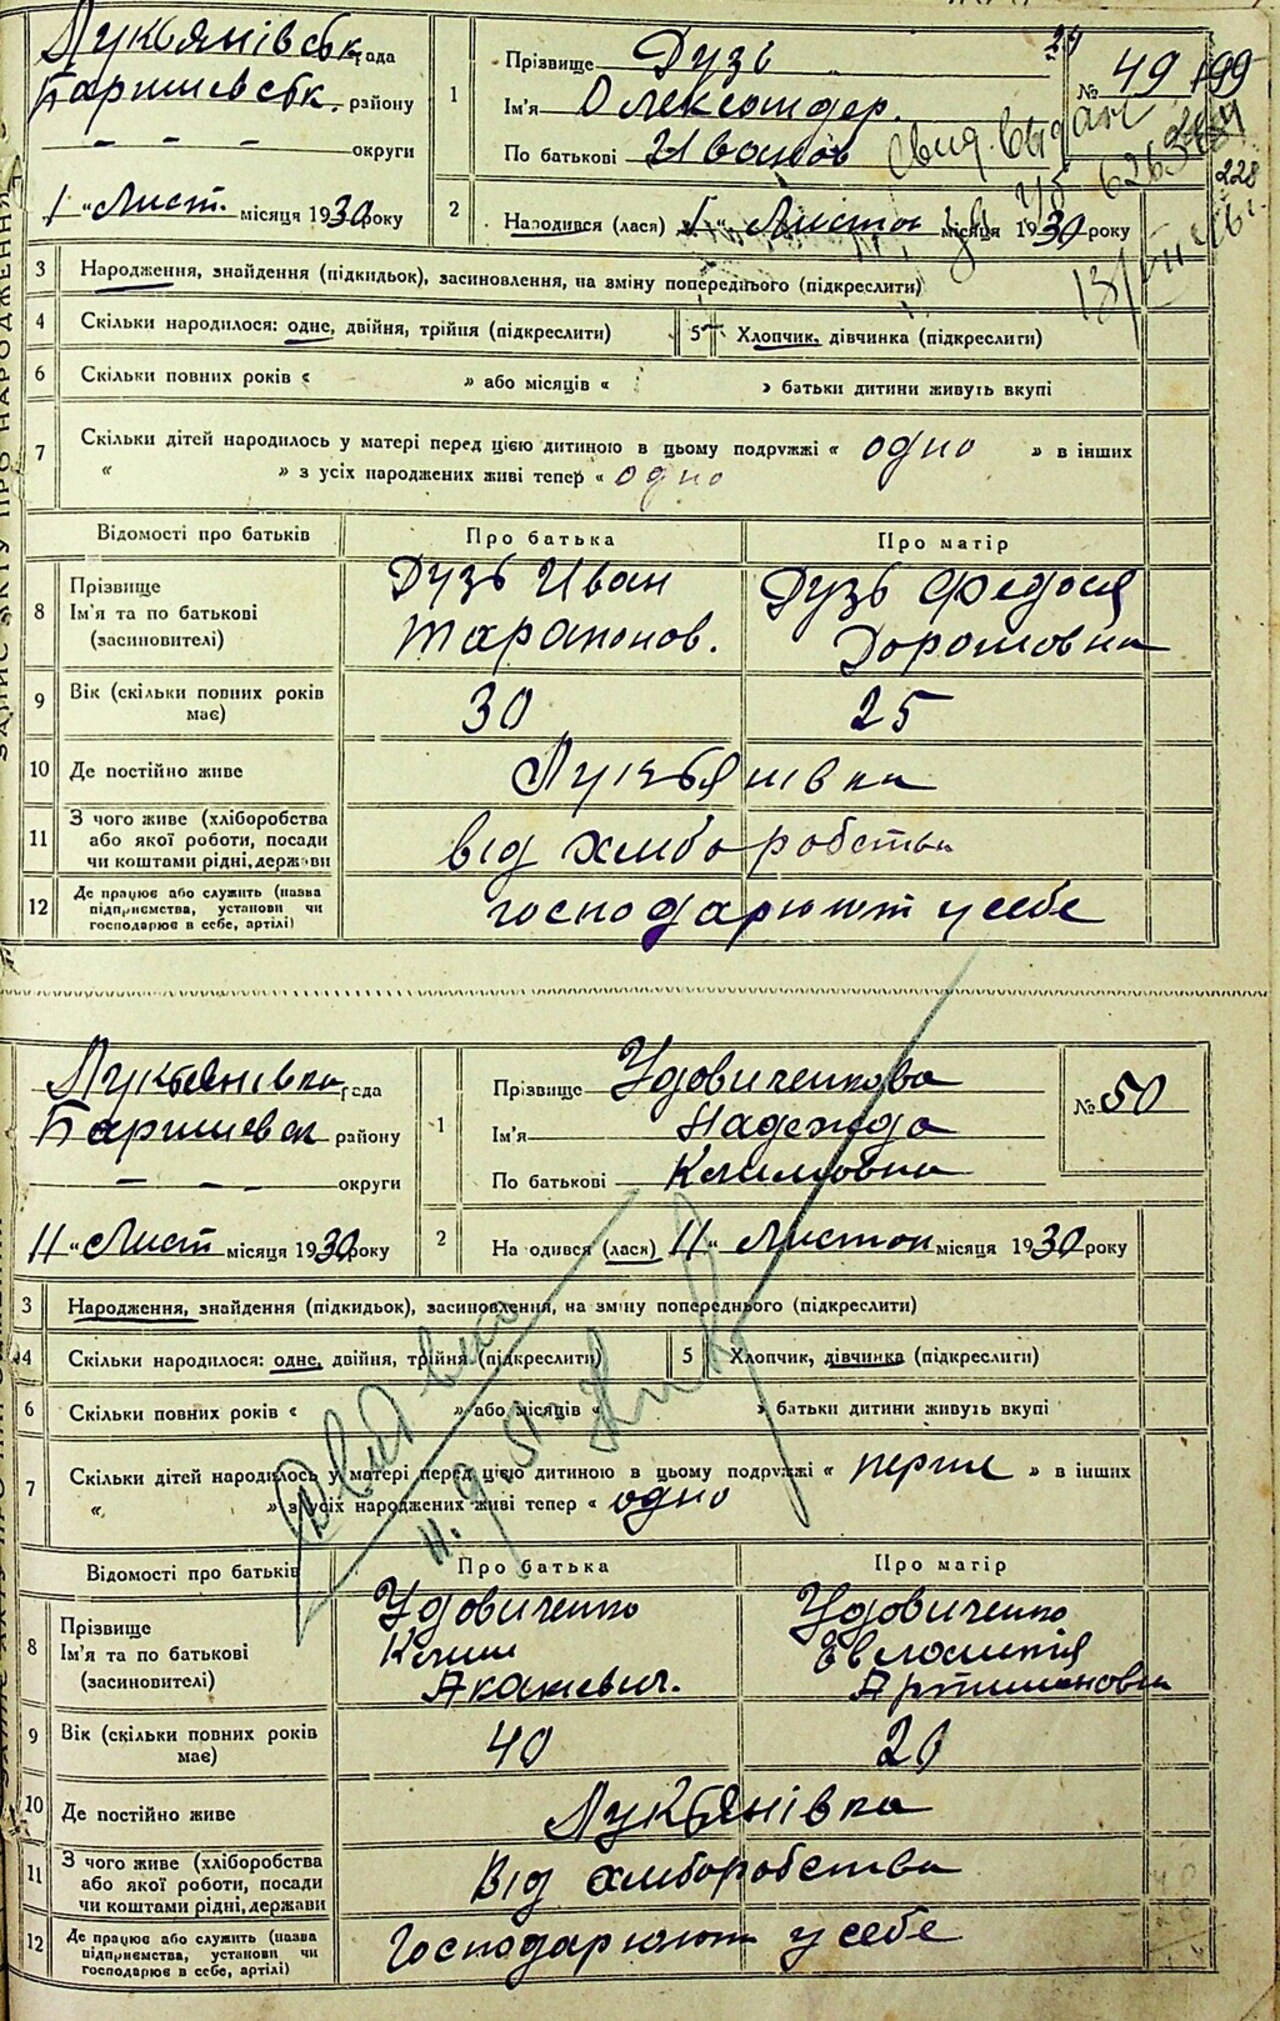 Лукьянівськ рада
Баришевськ. району
— — — округи
1 " Лист. місяця 1930 року
1
Прізвище Дузь
Ім'я Олександер.
По батькові Иванов
№ 49
199
228
Свид. выдан
2
Народився (лася) 1 " Листоп місяця 1930 року
3 Народження, знайдення (підкидьок), засиновлення, на зміну попереднього (підкреслити)
4 Скільки народилося: одне, двійня, трійня (підкреслити) 5 Хлопчик, дівчинка (підкреслити)
6 Скільки повних років « » або місяців « » батьки дитини живуть вкупі
7 Скільки дітей народилось у матері перед цією дитиною в цьому подружжі « одно » в інших
« » з усіх народжених живі тепер « одно
Відомості про батьків Про батька Про матір
8 Прізвище Ім'я та по батькові (засиновителі)
Дузь Иван
Тарапонов.
Дузь Федося
Дорошовна
9 Вік (скільки повних років має) 30 25
10 Де постійно живе Лукьянівка
11 З чого живе (хліборобства або якої роботи, посади чи коштами рідні, держави
від хліборобства
12 Де працює або служить (назва підприємства, установи чи господарює в себе, артілі)
господарюют у себе
ЗАПИС АКТУ ПРО НАРОДЖЕННЯ
Лукьянівка рада
Баришевск району
— — — округи
11 " Лист місяця 1930 року
1
Прізвище Удовиченкова
Ім'я Надежда
По батькові Климовна
№ 50
2
На одився (лася) 11 " Листоп місяця 1930 року
3 Народження, знайдення (підкидьок), засиновлення, на зміну попереднього (підкреслити)
4 Скільки народилося: одне, двійня, трійня (підкреслити) 5 Хлопчик, дівчинка (підкреслити)
6 Скільки повних років « » або місяців « » батьки дитини живуть вкупі
7 Скільки дітей народилось у матері перед цією дитиною в цьому подружжі « перше » в інших
« » з усіх народжених живі тепер « одно
Відомості про батьків Про батька Про матір
8 Прізвище Ім'я та по батькові (засиновителі)
Удовиченко
Клим
Акакиевич.
Удовиченко
9 Вік (скільки повних років має) 40
10 Де постійно живе Лукьянівка
11 З чого живе (хліборобства або якої роботи, посади чи коштами рідні, держави
Від хліборобства
12 Де працює або служить (назва підприємства, установи чи господарює в себе, артілі)
Господарюют у себе